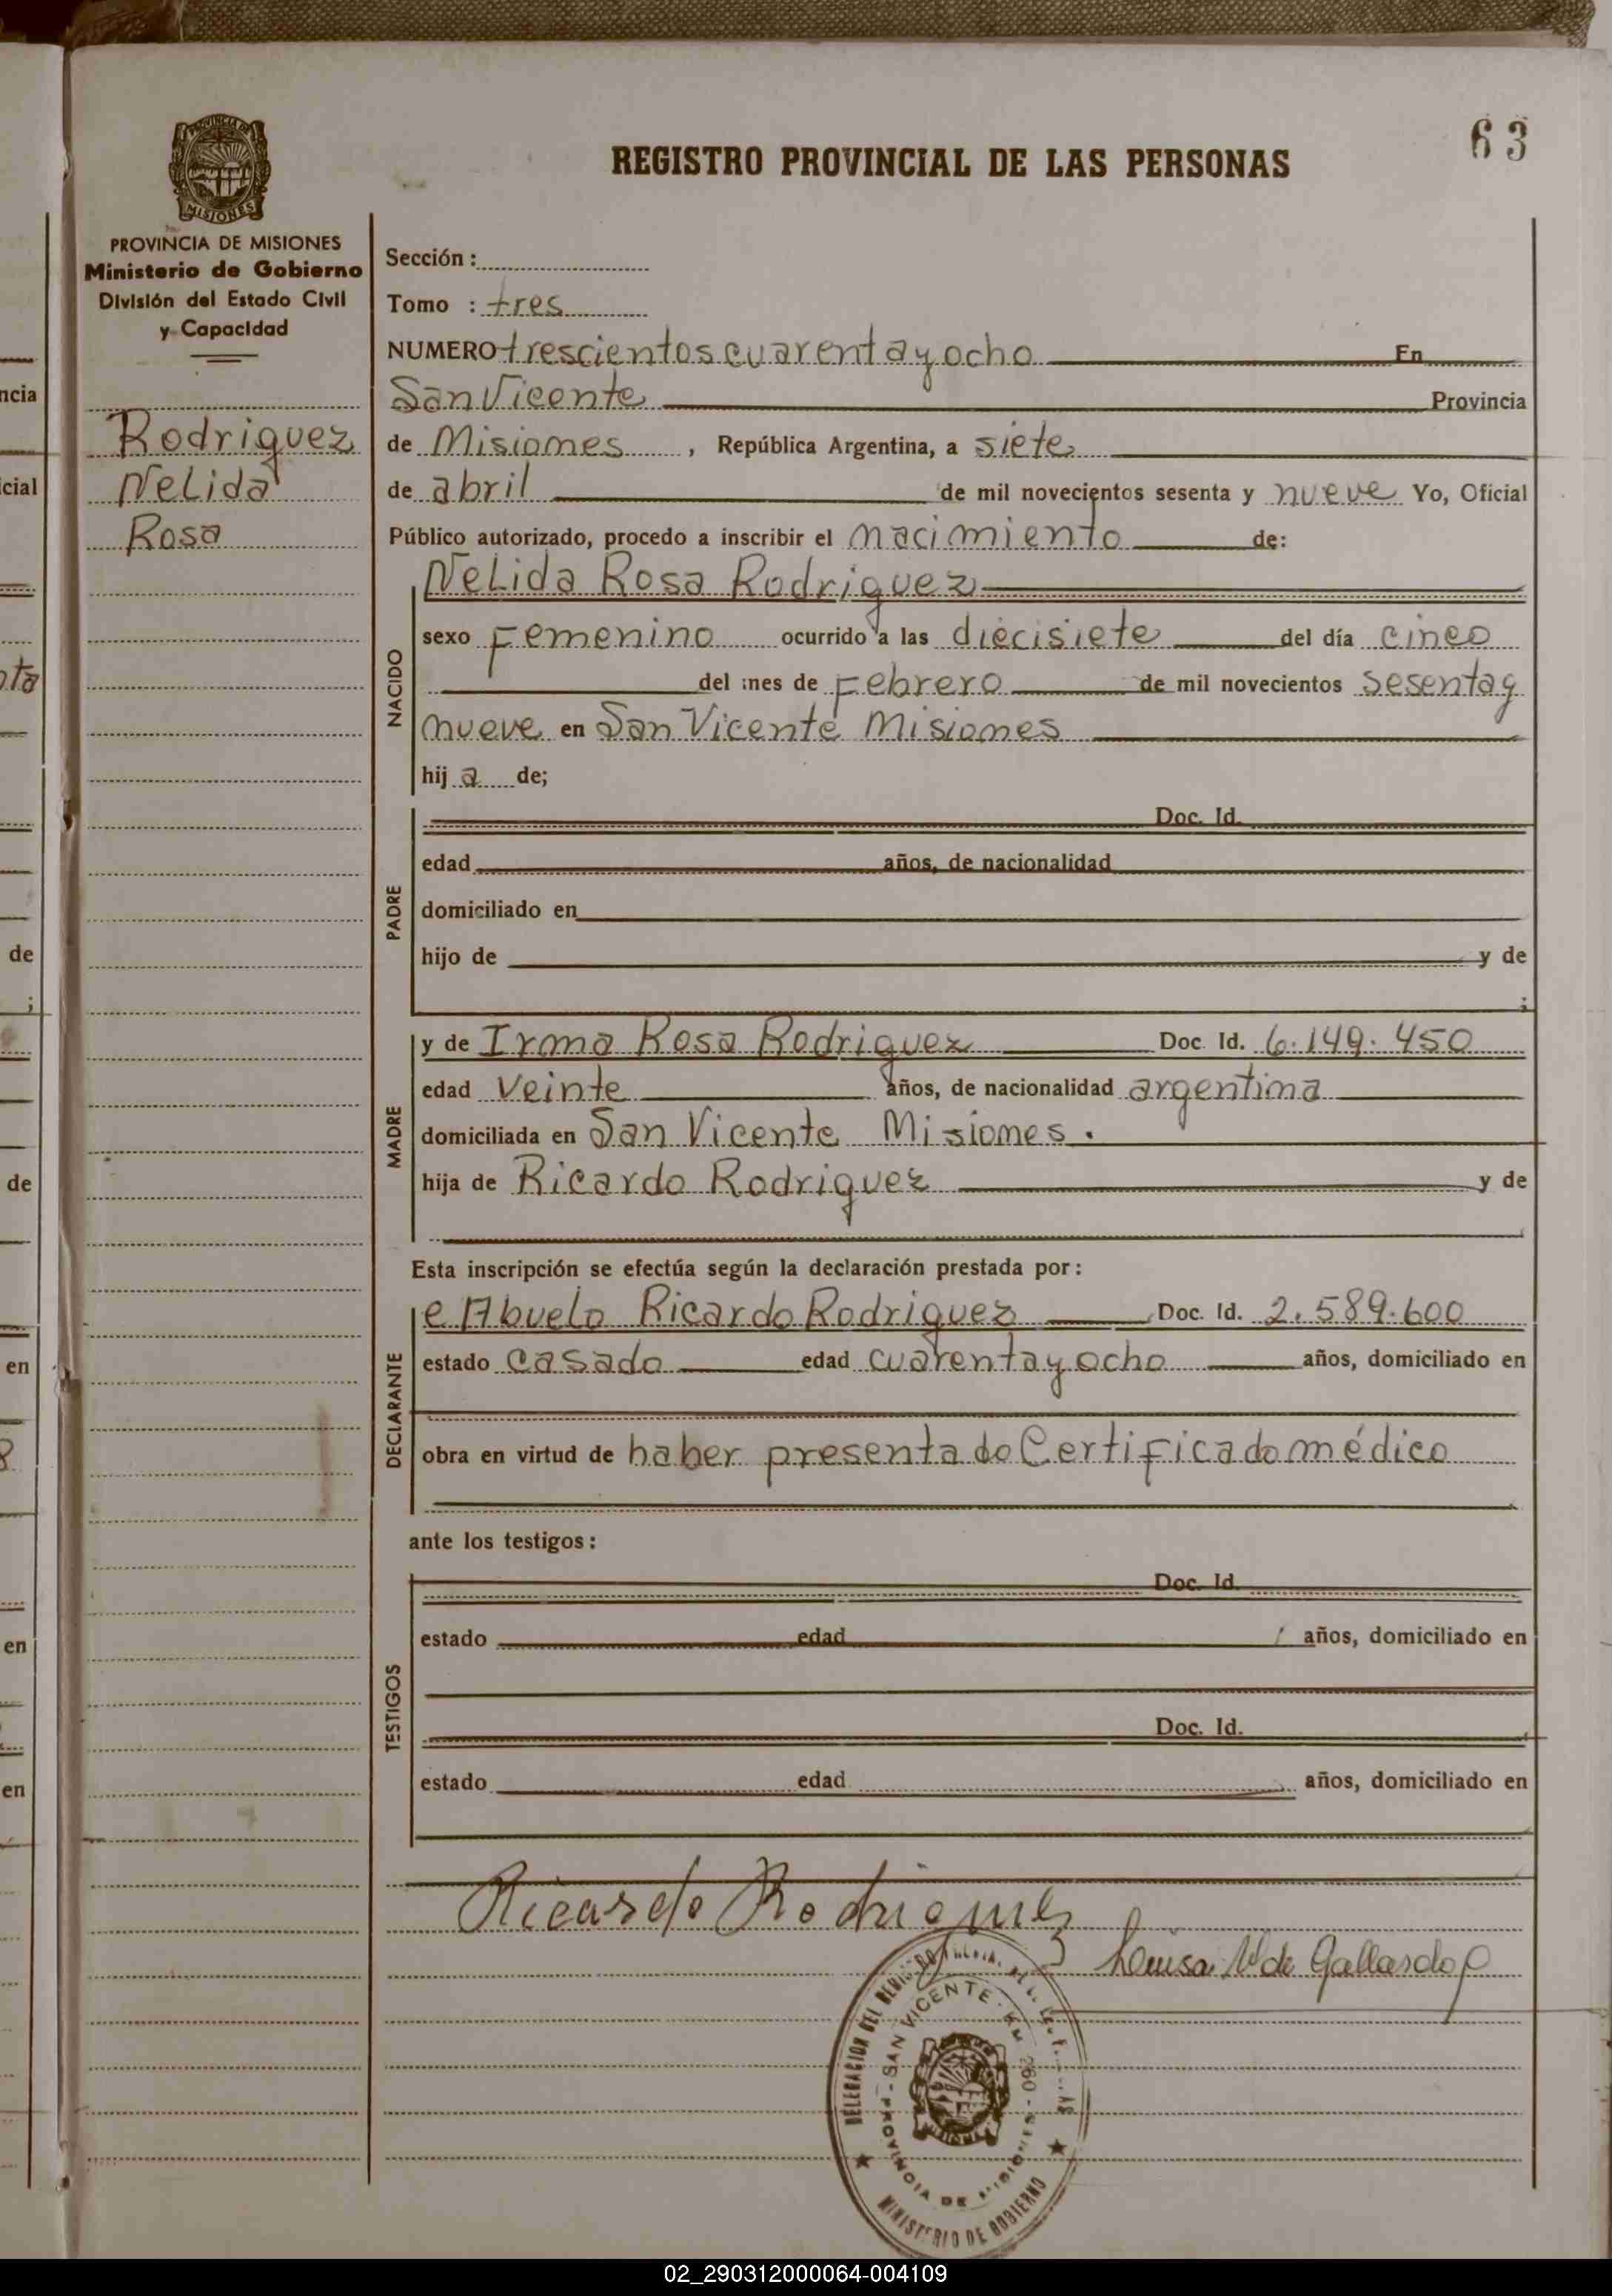 63
PROVINCIA DE
MISIONES
REGISTRO PROVINCIAL DE LAS PERSONAS
PROVINCIA DE MISIONES
Ministerio de Gobierno
División del Estado Civil
y Capacidad
Rodriguez
Nelida
Rosa
Sección :
Tomo : tres
NUMERO trescientos cuarenta y ocho En
San Vicente Provincia
de Misiones , República Argentina, a siete
de abril de mil novecientos sesenta y nueve Yo, Oficial
Público autorizado, procedo a inscribir el nacimiento de:
NACIDO
Nelida Rosa Rodriguez
sexo Femenino ocurrido a las diecisiete del día cinco
del mes de Febrero de mil novecientos sesenta y
nueve en San Vicente Misiones
hij a de;
PADRE
Doc. Id.
edad años, de nacionalidad
domiciliado en
hijo de y de
;
MADRE
y de Irma Rosa Rodriguez Doc. Id. 6.149.450
edad veinte años, de nacionalidad argentina
domiciliada en San Vicente Misiones.
hija de Ricardo Rodriguez y de
Esta inscripción se efectúa según la declaración prestada por:
DECLARANTE
el Abuelo Ricardo Rodriguez Doc. Id. 2.589.600
estado casado edad cuarenta y ocho años, domiciliado en
obra en virtud de haber presentado Certificado médico
ante los testigos:
TESTIGOS
Doc. Id.
estado edad años, domiciliado en
Doc. Id.
estado edad años, domiciliado en
Ricardo Rodriguez
Luisa V. de Gallardo
DELEGACION DEL
SAN VICENTE - KM 290 -
PROVINCIA DE MISIONES
MINISTERIO DE GOBIERNO
ncia
cial
de
;
de
en
en
en
02_290312000064-004109